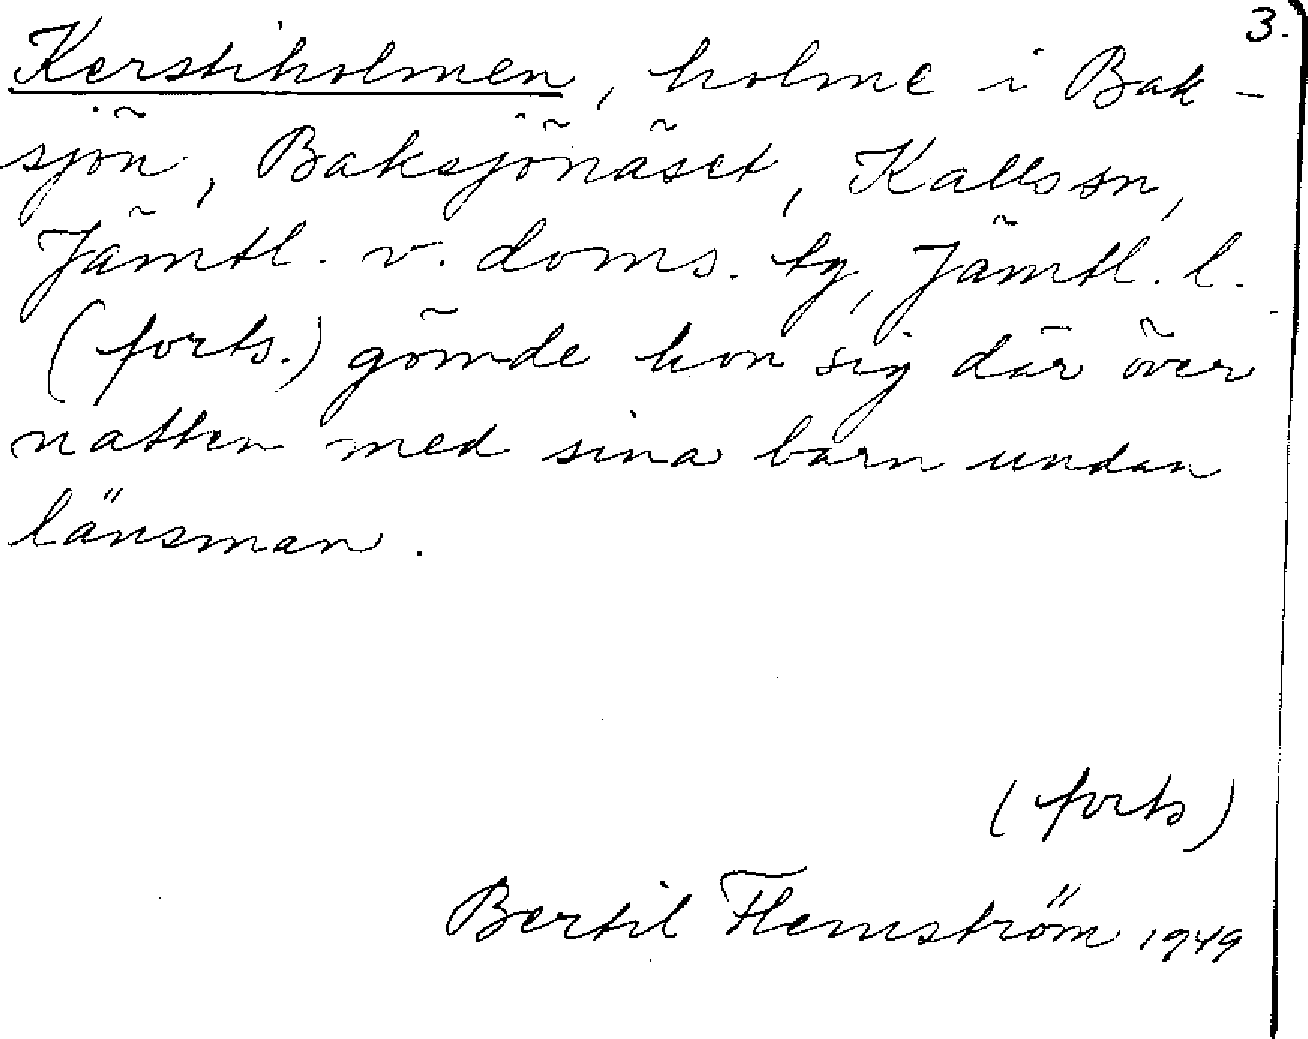 3.
Kerstiholmen, holme i Bak-
sjön, Baksjönäset, Kalls sn,
Jämtl. v. doms. tg, Jämtl. l.
(forts.) gömde hon sig där över
natten med sina barn undan
länsman.
(forts)
Bertil Flemström 1949